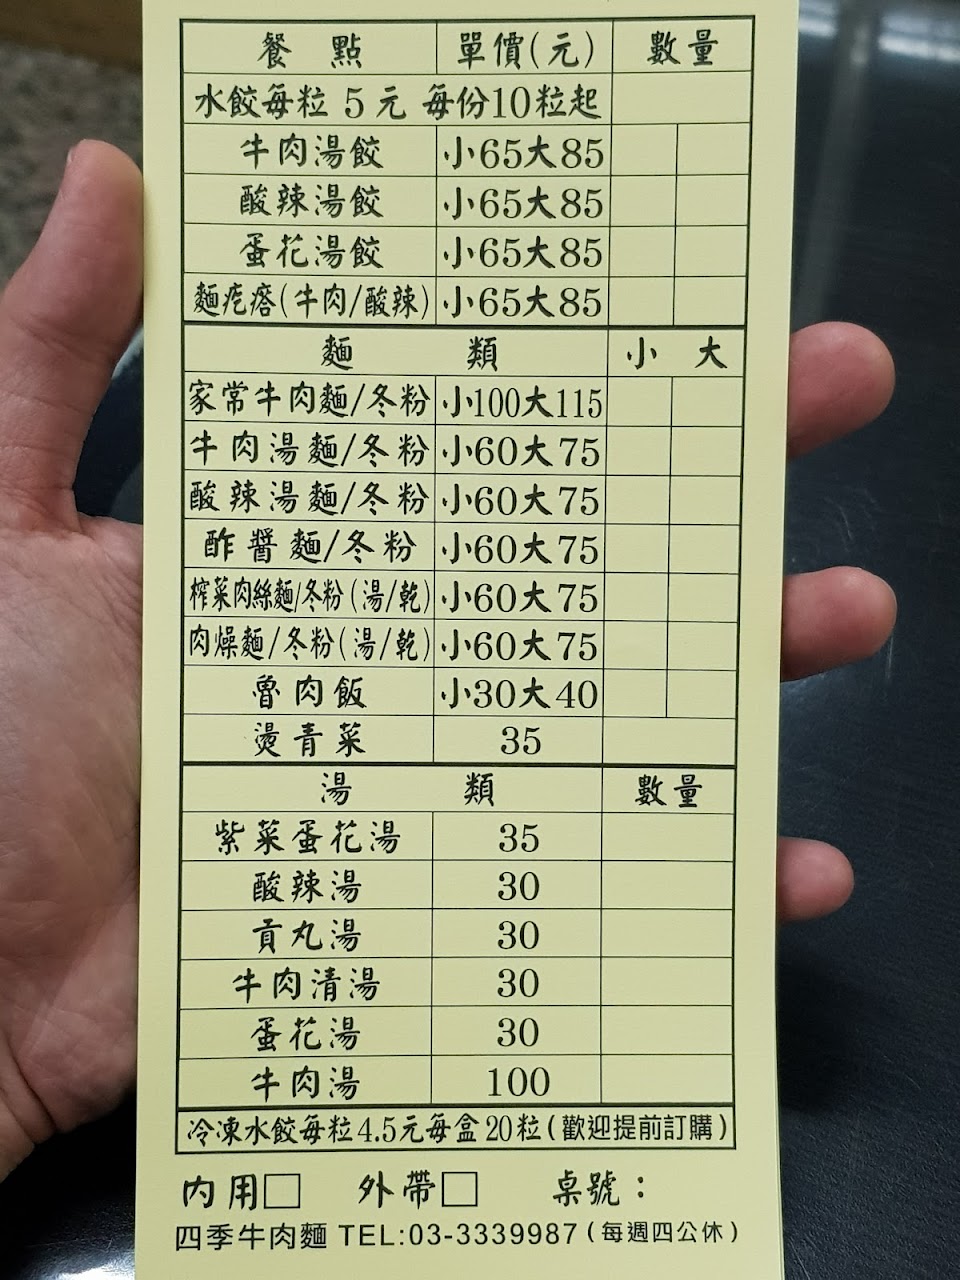 餐 點 單價(元) 數量
水餃每粒 5 元 每份10粒起
牛肉湯餃 小65大85
酸辣湯餃 小65大85
蛋花湯餃 小65大85
麵疙瘩(牛肉/酸辣) 小65大85
麵 類 小 大
家常牛肉麵/冬粉 小100大115
牛肉湯麵/冬粉 小60大75
酸辣湯麵/冬粉 小60大75
酢醬麵/冬粉 小60大75
榨菜肉絲麵/冬粉(湯/乾) 小60大75
肉燥麵/冬粉(湯/乾) 小60大75
魯肉飯 小30大40
燙青菜 35
湯 類 數量
紫菜蛋花湯 35
酸辣湯 30
貢丸湯 30
牛肉清湯 30
蛋花湯 30
牛肉湯 100
冷凍水餃每粒4.5元每盒20粒(歡迎提前訂購)
內用□ 外帶□ 桌號：
四季牛肉麵 TEL:03-3339987(每週四公休)